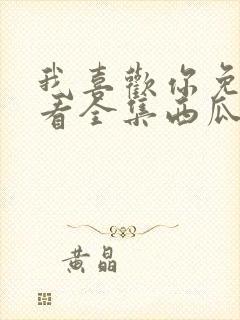 我喜歡你免
看全集西瓜
黄晶